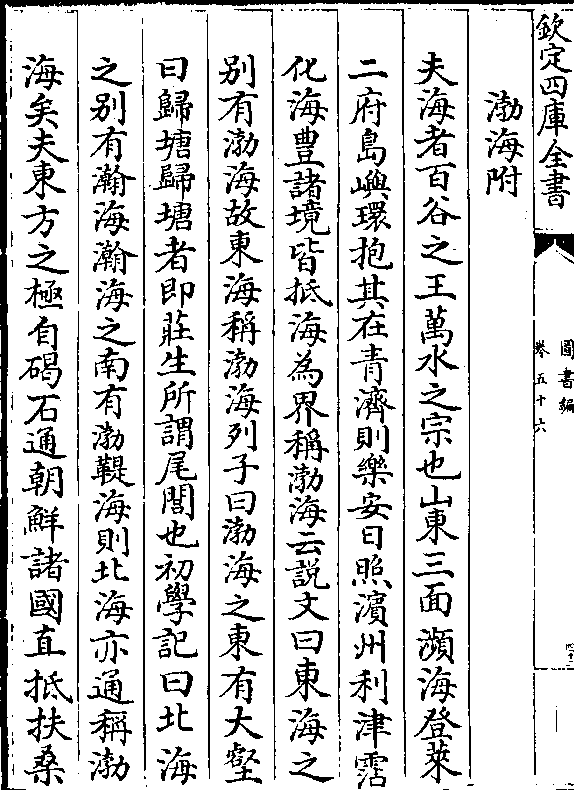 欽定四庫全書
圖書編
卷五十六
渤海附
夫海者百谷之王萬水之宗也山東三面瀕海登萊
二府島嶼環抱其在青濟則樂安日照濵州利津霑
化海豐諸境皆抵海為界稱渤海云説文曰東海之
别有渤海故東海稱渤海列子曰渤海之東有大壑
曰歸塘歸塘者即莊生所謂尾閭也初學記曰北海
之别有瀚海瀚海之南有渤鞮海則北海亦通稱渤
海矣夫東方之極自碣石通朝鮮諸國直抵扶桑